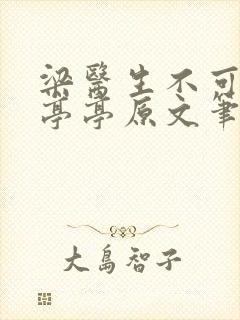 梁醫生不可
亭亭原文筆
大島智子